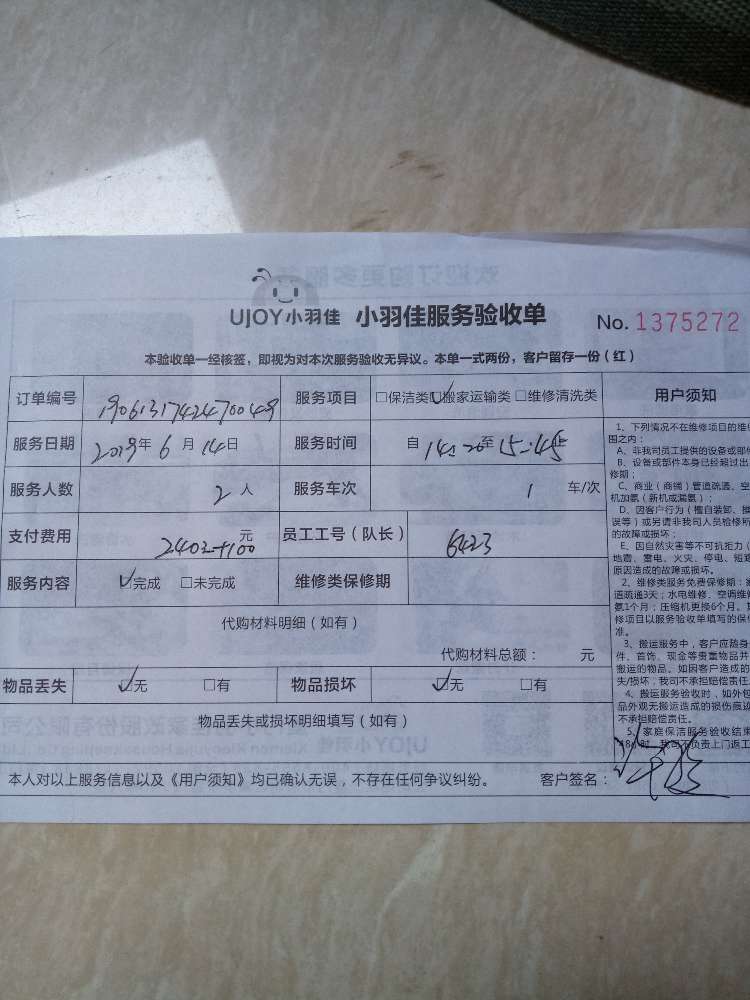 UJOY小羽佳 小羽佳服务验收单 No. 1375272
本验收单一经核签，即视为对本次服务验收无异议。本单一式两份，客户留存一份（红）
订单编号 19061317424700049 服务项目 □保洁类 ☑搬家运输类 □维修清洗类 用户须知
服务日期 2019年 6 月 14日 服务时间 自 14:20至15:45止
服务人数 2 人 服务车次 1 车/次
支付费用 240元+100 员工工号（队长） 6423
服务内容 ☑完成 □未完成 维修类保修期
代购材料明细（如有）
代购材料总额： 元
物品丢失 ☑无 □有 物品损坏 ☑无 □有
物品丢失或损坏明细填写（如有）
本人对以上服务信息以及《用户须知》均已确认无误，不存在任何争议纠纷。 客户签名：
1、下列情况不在维修项目的维
围之内：
A、非我司员工提供的设备或部
B、设备或部件本身已经超过出
修期；
C、商业（商铺）管道疏通、空
机加氨（新机或漏氨）；
D、因客户行为（擅自装卸、
误等）或另请非我司人员检修所
的故障或损坏；
E、因自然灾害等不可抗拒力（
地震、雷电、火灾、停电、短
原因造成的故障或损坏。
2、维修类服务免费保修期：
道疏通3天；水电维修、空调维
氨1个月；压缩机更换6个月。
修项目以服务验收单填写的保
准。
3、搬运服务中，客户应随身
件、首饰、现金等贵重物品并
搬运的物品。如因客户造成的
失/损坏，我司不承担赔偿责任
4、搬运服务验收时，如外包
品外观无搬运造成的损伤痕迹
不承担赔偿责任。
5、家庭保洁服务验收结束
48小时，我司不负责上门返工